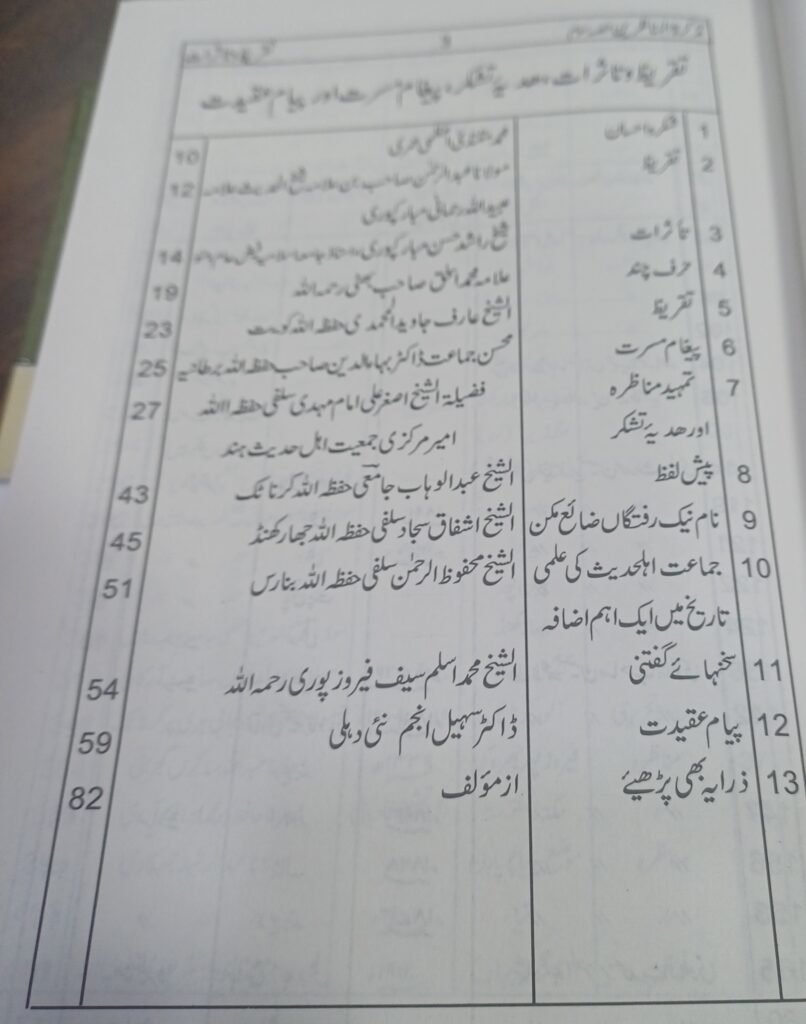 تقریظ و تاثرات، ھدیۂ تشکر، پیغام مسرت اور پیام عقیدت
1 تشکر و احسان 10
2 تقریظ مولانا عبدالرحمٰن صاحب بن علامہ شیخ الحدیث علامہ 12
عبیداللہ رحمانی مبارکپوری
3 تأثرات شیخ راشد حسن مبارکپوری 14
4 حرف چند علامہ محمد اسحٰق صاحب بھٹی رحمہ اللہ 19
5 تقریظ الشیخ عارف جاوید المحمدی حفظہ اللہ کویت 23
6 پیغام مسرت محسن جماعت ڈاکٹر بہاء الدین صاحب حفظہ اللہ برطانیہ 25
7 تمہید مناظرہ فضیلۃ الشیخ اصغر علی امام مہدی سلفی حفظہ اللہ 27
اور ھدیۂ تشکر امیر مرکزی جمعیت اہل حدیث ہند
8 پیش لفظ الشیخ عبدالوہاب جامعی حفظہ اللہ کرناٹک 43
9 نام نیک رفتگاں ضائع مکن الشیخ اشفاق سجاد سلفی حفظہ اللہ جھارکھنڈ 45
10 جماعت اہلحدیث کی علمی الشیخ محفوظ الرحمٰن سلفی حفظہ اللہ بنارس 51
تاریخ میں ایک اہم اضافہ
11 سخنہائے گفتنی الشیخ محمد اسلم سیف فیروز پوری رحمہ اللہ 54
12 پیام عقیدت ڈاکٹر سہیل انجم نئی دہلی 59
13 ذرا یہ بھی پڑھیئے از مؤلف 82